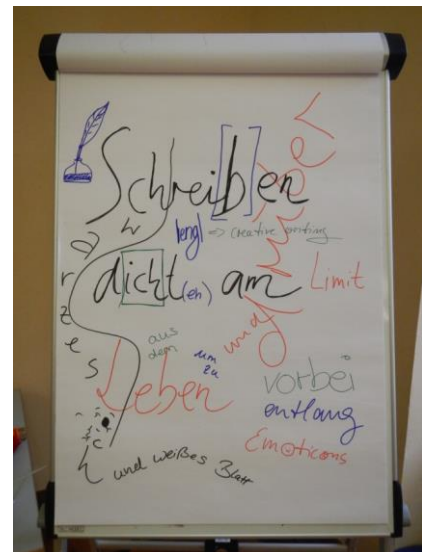 Schrei[b]en
[engl => creative writing
dicht(en) am Limit
und
aus
dem
um
zu
Leben
vorbei
entlang
Emoticons
und weißes Blatt